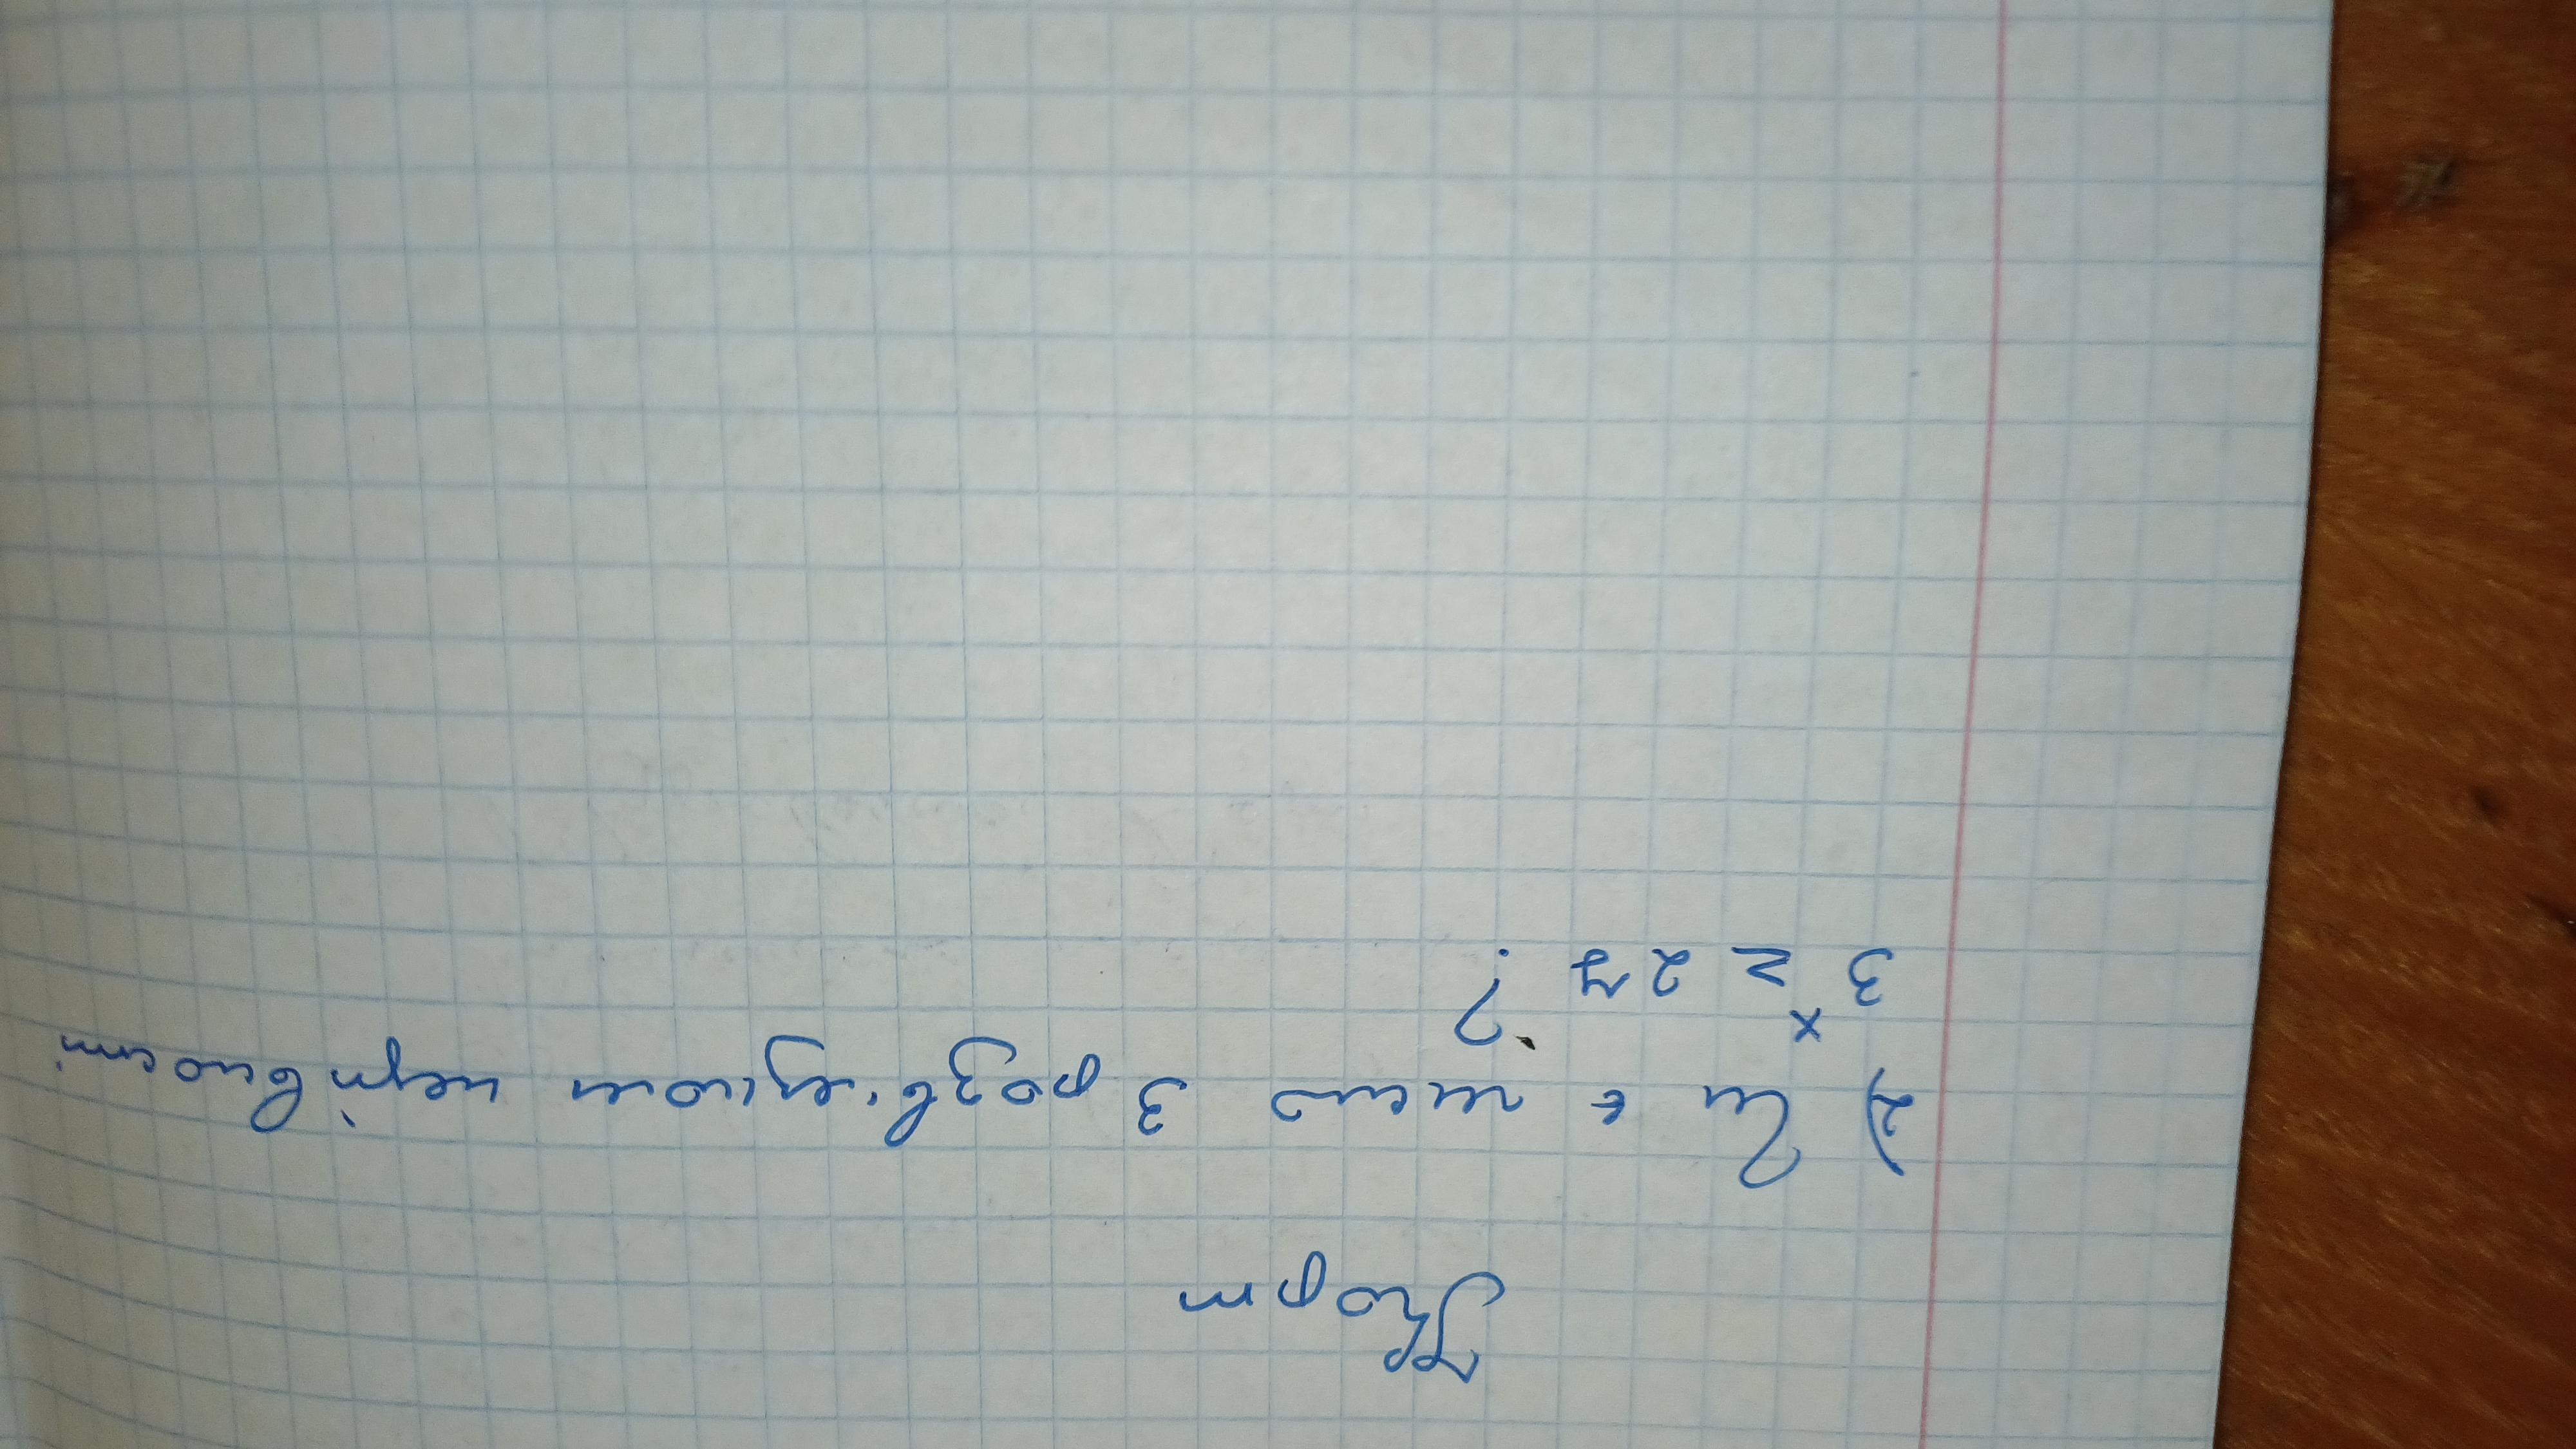 Норт
2) Чи є число 3 розв'язком нерівності
3ˣ ≥ 27?